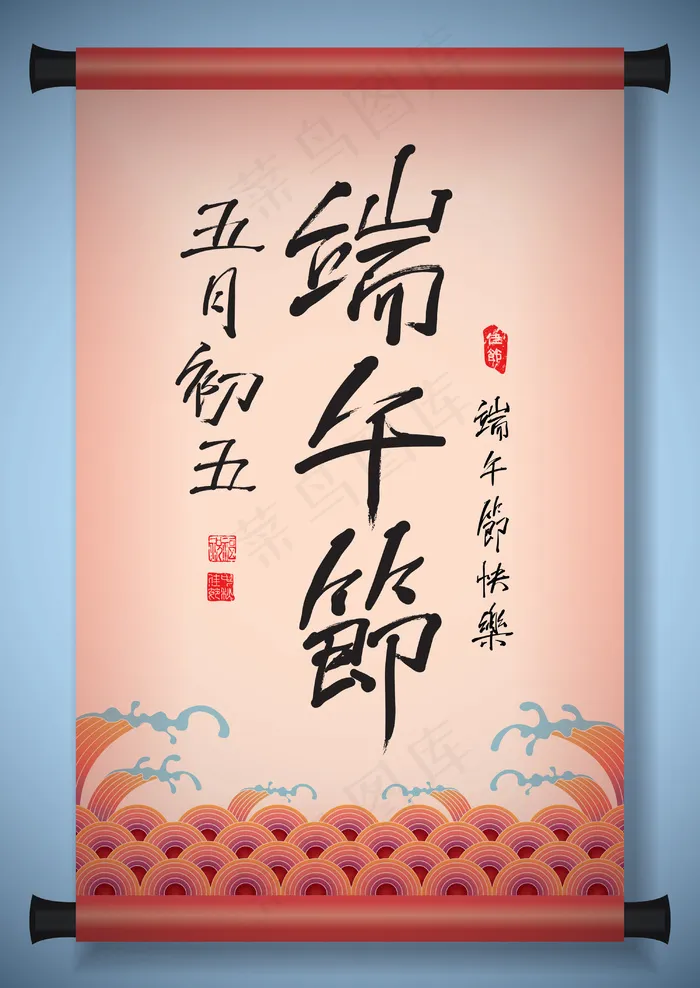 佳節
端午節快樂
端午節
五月初五
中秋
佳節
菜鸟图库